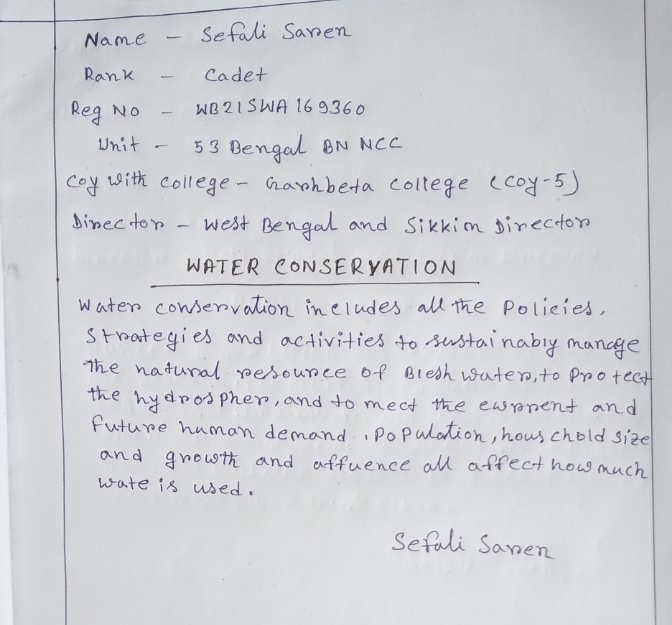 Name - Sefali Saren
Rank - Cadet
Reg No - WB21SWA169360
Unit - 53 Bengal BN NCC
Coy with college - Garhbeta college (coy-5)
Director - West Bengal and Sikkim Director
WATER CONSERVATION
Water conservation includes all the Policies,
Strategies and activities to sustainably manage
the natural resource of Bresh water, to Protect
the hydrospher, and to meet the current and
future human demand. Population, household size
and growth and affuence all affect how much
wate is used.
Sefali Saren